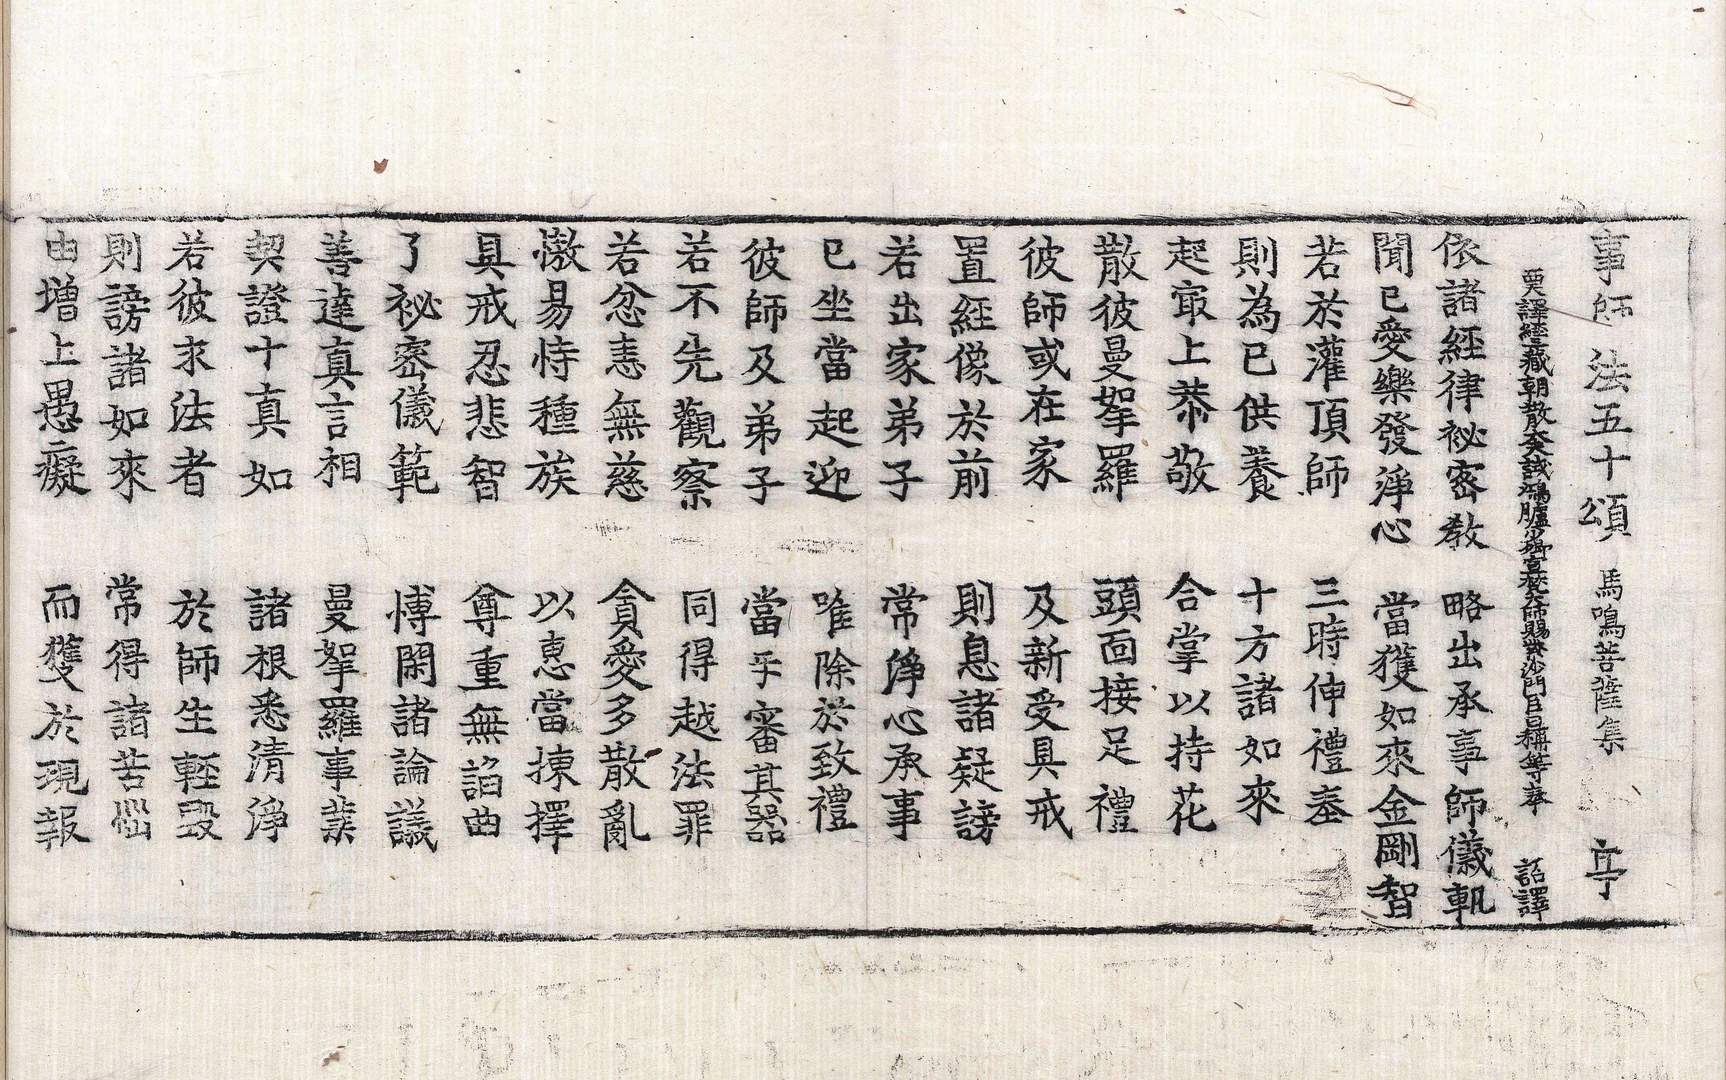 事師法五十頌 馬鳴菩薩集 亭
西天譯經三藏朝散大夫試鴻臚少卿宣梵大師賜紫沙門臣日稱等奉 詔譯
依諸經律祕密教 略出承事師儀軌
聞已愛樂發淨心 當獲如來金剛智
若於灌頂師 三時伸禮奉
則為已供養 十方諸如來
起㝡上恭敬 合掌以持花
散彼曼拏羅 頭面接足禮
彼師或在家 及新受具戒
置經像於前 則息諸疑謗
若出家弟子 常淨心承事
已坐當起迎 唯除於致禮
彼師及弟子 當乎審其器
若不先觀察 同得越法罪
若忿恚無慈 貪愛多散亂
憿易恃種族 以惠當揀擇
具戒忍悲智 尊重無諂曲
了祕密儀範 愽閑諸論議
善達真言相 曼拏羅事業
契證十真如 諸根悉清淨
若彼求法者 於師生輕毀
則謗諸如來 常得諸苦惱
由增上愚癡 而獲於現報